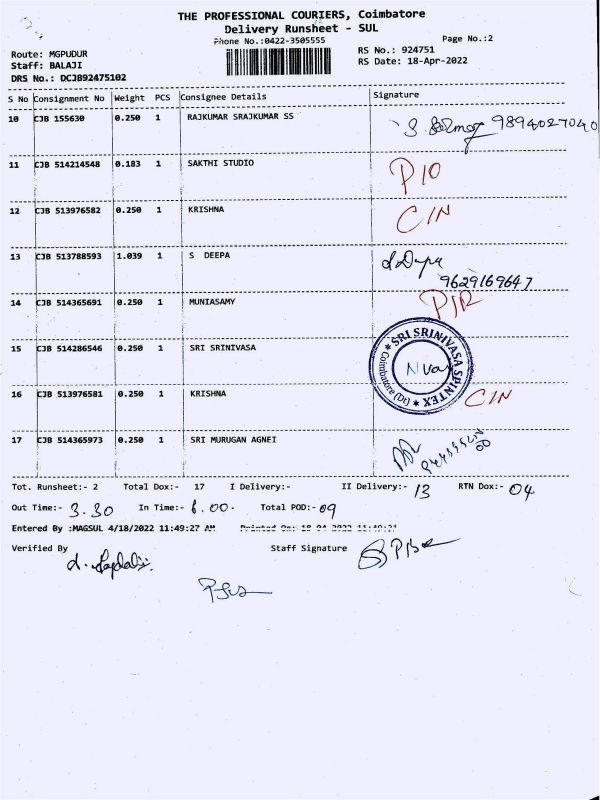 THE PROFESSIONAL COURIERS, Coimbatore
Delivery Runsheet - SUL
Phone No.:0422-3505555
Page No.:2
Route: MGPUDUR
RS No.: 924751
Staff: BALAJI
RS Date: 18-Apr-2022
DRS No.: DCJB92475102
S No Consignment No Weight PCS Consignee Details Signature
10 CJB 155630 0.250 1 RAJKUMAR SRAJKUMAR SS 9894027040
11 CJB 514214548 0.183 1 SAKTHI STUDIO P10
12 CJB 513976582 0.250 1 KRISHNA C/N
13 CJB 513788593 1.039 1 S DEEPA
9629169647
14 CJB 514365691 0.250 1 MUNIASAMY P/R
15 CJB 514286546 0.250 1 SRI SRINIVASA SRI SRINIVASA SPINTEX
Coimbatore (Dt)
16 CJB 513976581 0.250 1 KRISHNA C/N
17 CJB 514365973 0.250 1 SRI MURUGAN AGNEI
Tot. Runsheet:- 2 Total Dox:- 17 I Delivery:- II Delivery:- 13 RTN Dox:- 04
Out Time:- 3.30 In Time:- 6.00. Total POD:- 09
Entered By :MAGSUL 4/18/2022 11:49:27 AM Printed On: 18-04-2022 11:49:31
Verified By Staff Signature